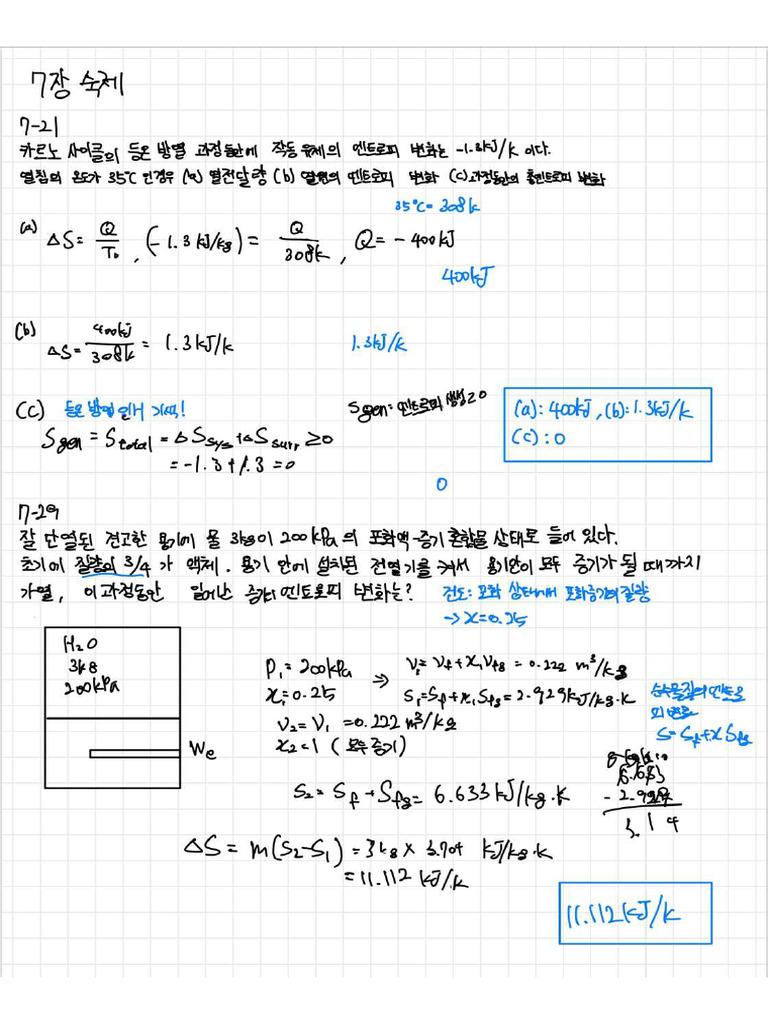 7장 숙제
7-21
카르노 사이클의 등온 방열 과정동안에 작동 유체의 엔트로피 변화는 -1.3kJ/K 이다.
열침의 온도가 35℃ 인경우 (a) 열전달량 (b) 열침의 엔트로피 변화 (c) 과정동안의 총엔트로피 변화
35℃ = 308k
(a) ΔS = Q/T₀ , (-1.3 kJ/kg) = Q/308k , Q = -400kJ
400kJ
(b) ΔS = 400kJ/308k = 1.3 kJ/k
1.3kJ/k
(c) 등온 방열 가역!
Sgen = 엔트로피 생성 ≥ 0
(a): 400kJ, (b): 1.3kJ/k
(c) : 0
Sgen = Stotal = ΔSsys + ΔSsurr ≥ 0
= -1.3 + 1.3 = 0
0
7-29
잘 단열된 견고한 용기에 물 3kg이 200kPa 의 포화액-증기 혼합물 상태로 들어 있다.
초기에 질량의 3/4 가 액체. 용기 안에 설치된 전열기를 켜서 용기안이 모두 증기가 될 때까지
가열, 이 과정동안 일어난 증기의 엔트로피 변화는?
건도: 포화 상태에서 포화증기의 질량
→ x = 0.25
H₂O
3kg
200kPa
We
P₁ = 200kPa
x₁ = 0.25
⇒ v₁ = vf + x₁vfg = 0.222 m³/kg
s₁ = sf + x₁sfg = 2.929kJ/kg·K
v₂ = v₁ = 0.222 m³/kg
x₂ = 1 (모두 증기)
순수물질의 엔트로
피 변화
s = sf + x sfg
s₂ = sf + sfg = 6.633 kJ/kg·K
- 2.929
ΔS = m(s₂-s₁) = 3kg × 3.704 kJ/kg·k
= 11.112 kJ/k
11.112kJ/k